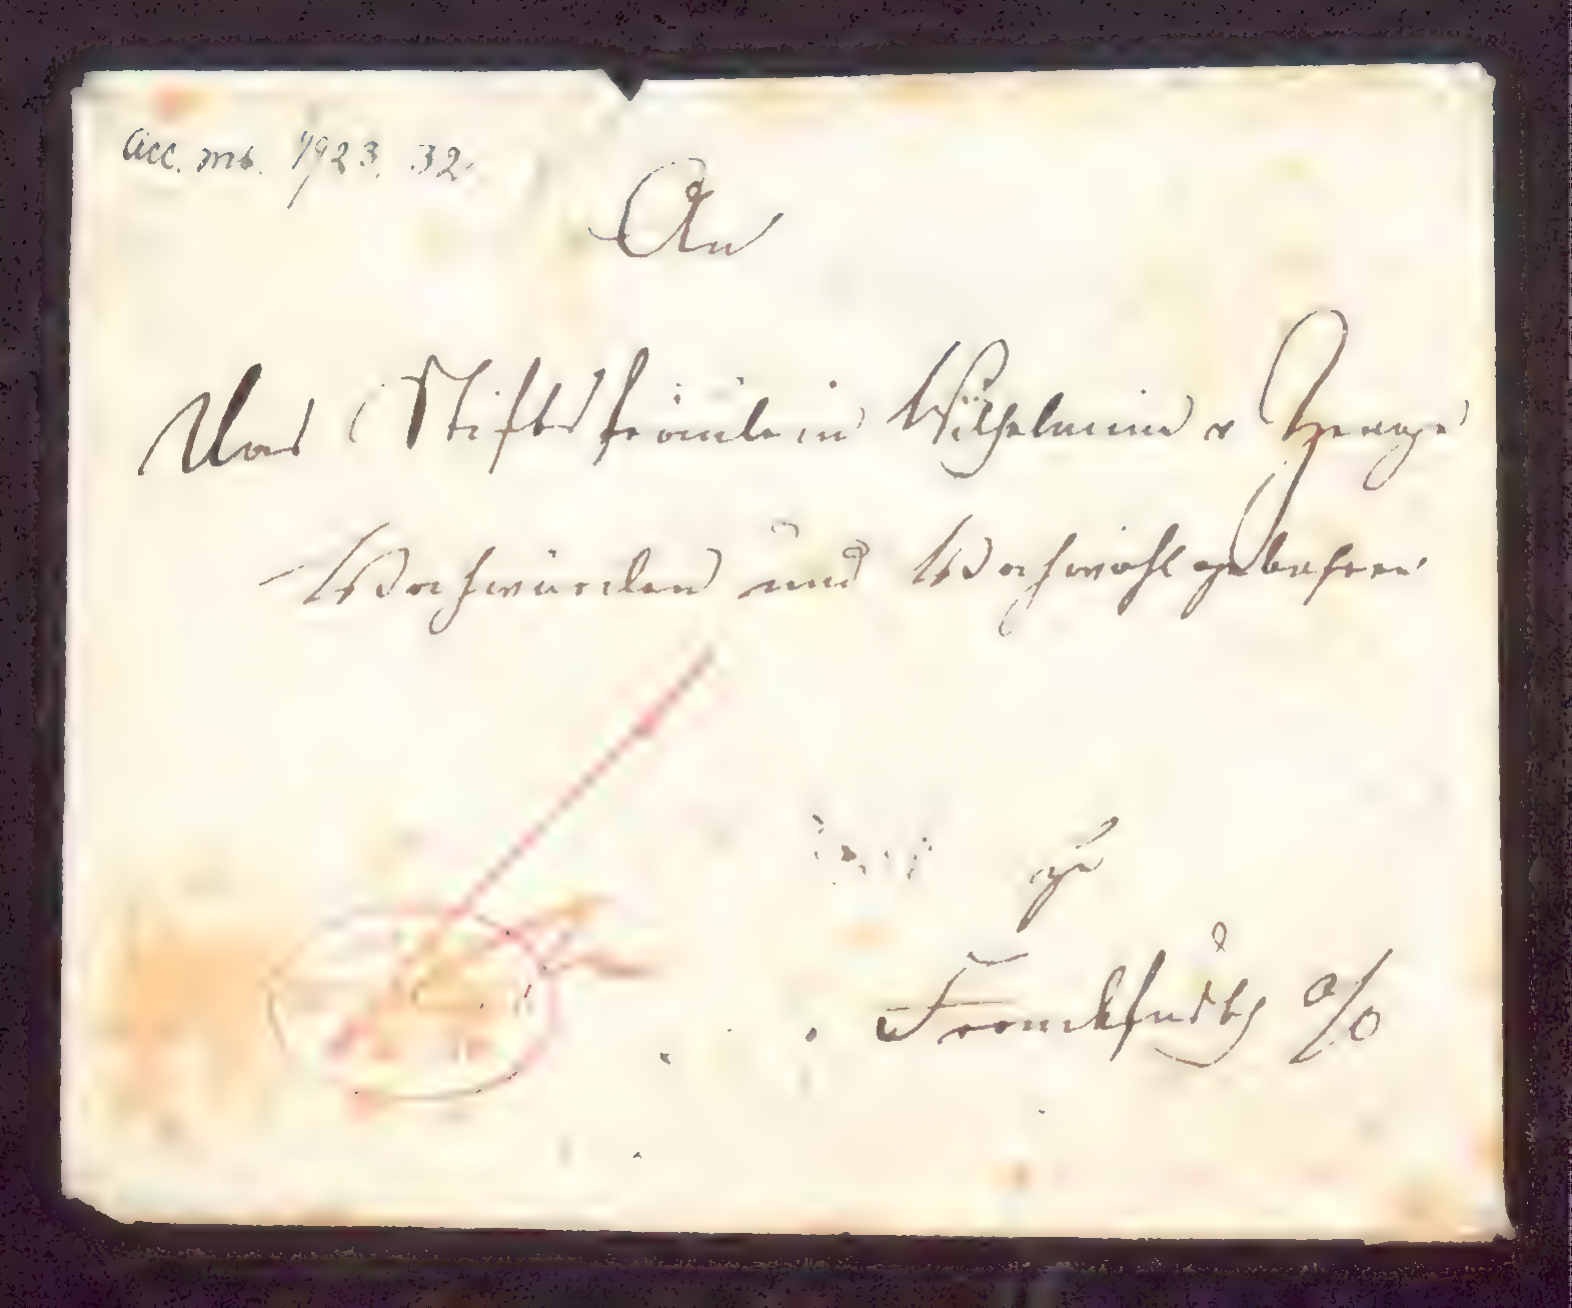 acc. ms. 1923. 32.
An
Das Stiftsfräulein Wilhelmine v Zenge
Hochwürden und Hochwohlgebohren
zu
Franckfurth a/O